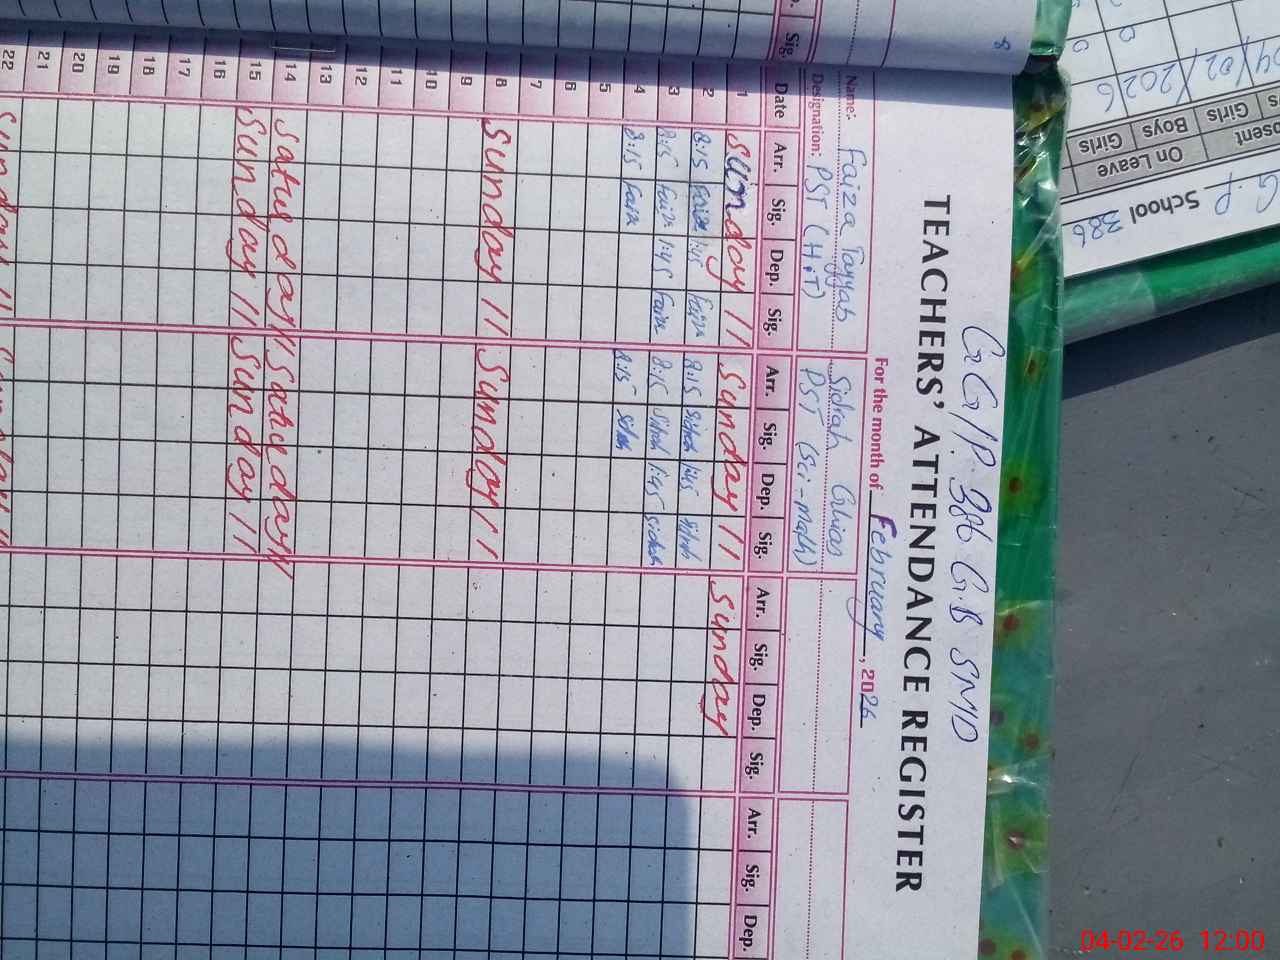 G.G/P.S 386 G.B SMD
TEACHERS' ATTENDANCE REGISTER
For the month of February, 2026
Name: Faiza Tayyab Sidrah Ghias
Designation: PST (H.T) PST (Sci-Math)
Date Arr. Sig. Dep. Sig. Arr. Sig. Dep. Sig. Arr. Sig. Dep. Sig. Arr. Sig. Dep.
1 Sunday 11 Sunday 11 Sunday
2 8:15 Faiza 1:45 Faiza 8:15 Sidrah 1:45 Sidrah
3 8:15 Faiza 1:45 Faiza 8:15 Sidrah 1:45 Sidrah
4 8:15 Faiza 8:15 Sidrah
5
6
7
8 Sunday 11 Sunday 11
9
10
11
12
13
14 Saturday 11 Saturday 11
15 Sunday 11 Sunday 11
16
17
18
19
20
21
22 Sunday 11 Sunday 11
Sig.
Sig.
8
04/02/2026
0
0
Girls
On Leave Boys
Girls
G.P School 386
04-02-26 12:00